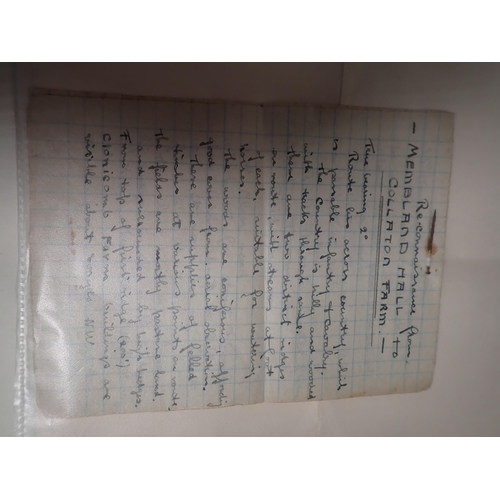 Reconnaissance from
- MEMBLAND HALL to
COLLATON FARM. -
True bearing 2°
Route lies across country, which
is passable infantry & cavalry.
The Country is hilly and wooded
with tracks through woods.
there are two distinct ridges
on route, with streams at foot
of each, suitable for watering
horses.
the woods are coniferous, affording
good cover from aerial observation.
there are supplies of felled
timber at various points on route.
the fields are mostly pasture land
and surrounded by high hedges.
From top of first ridge
Farm buildings are
visible about